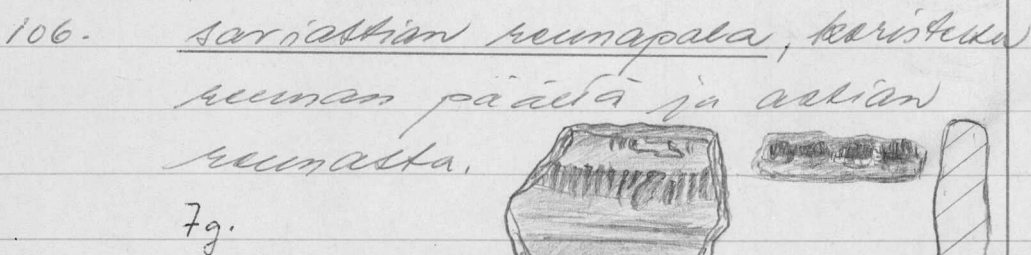 106. saviastian reunapala, koristeltu
reunan päältä ja astian
reunasta.
7g.